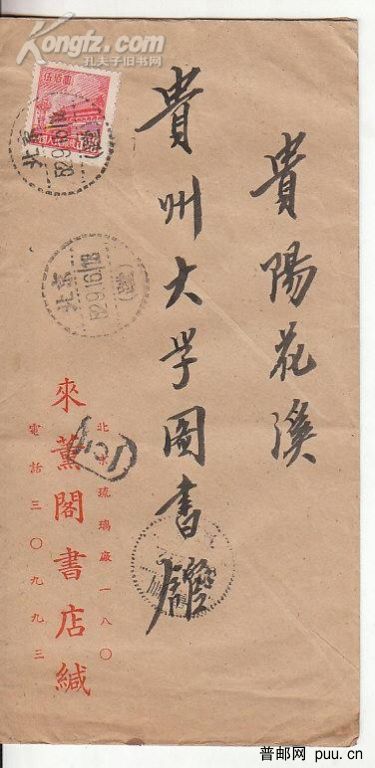 貴陽花溪
貴州大学圖書館
伍佰圓
北京
52.9.16.18
北京
52.9.16.18
北京琉璃廠一八〇
來薰閣書店緘
電話三〇九九三
Kongfz.com
孔夫子旧书网
普邮网 puu.cn